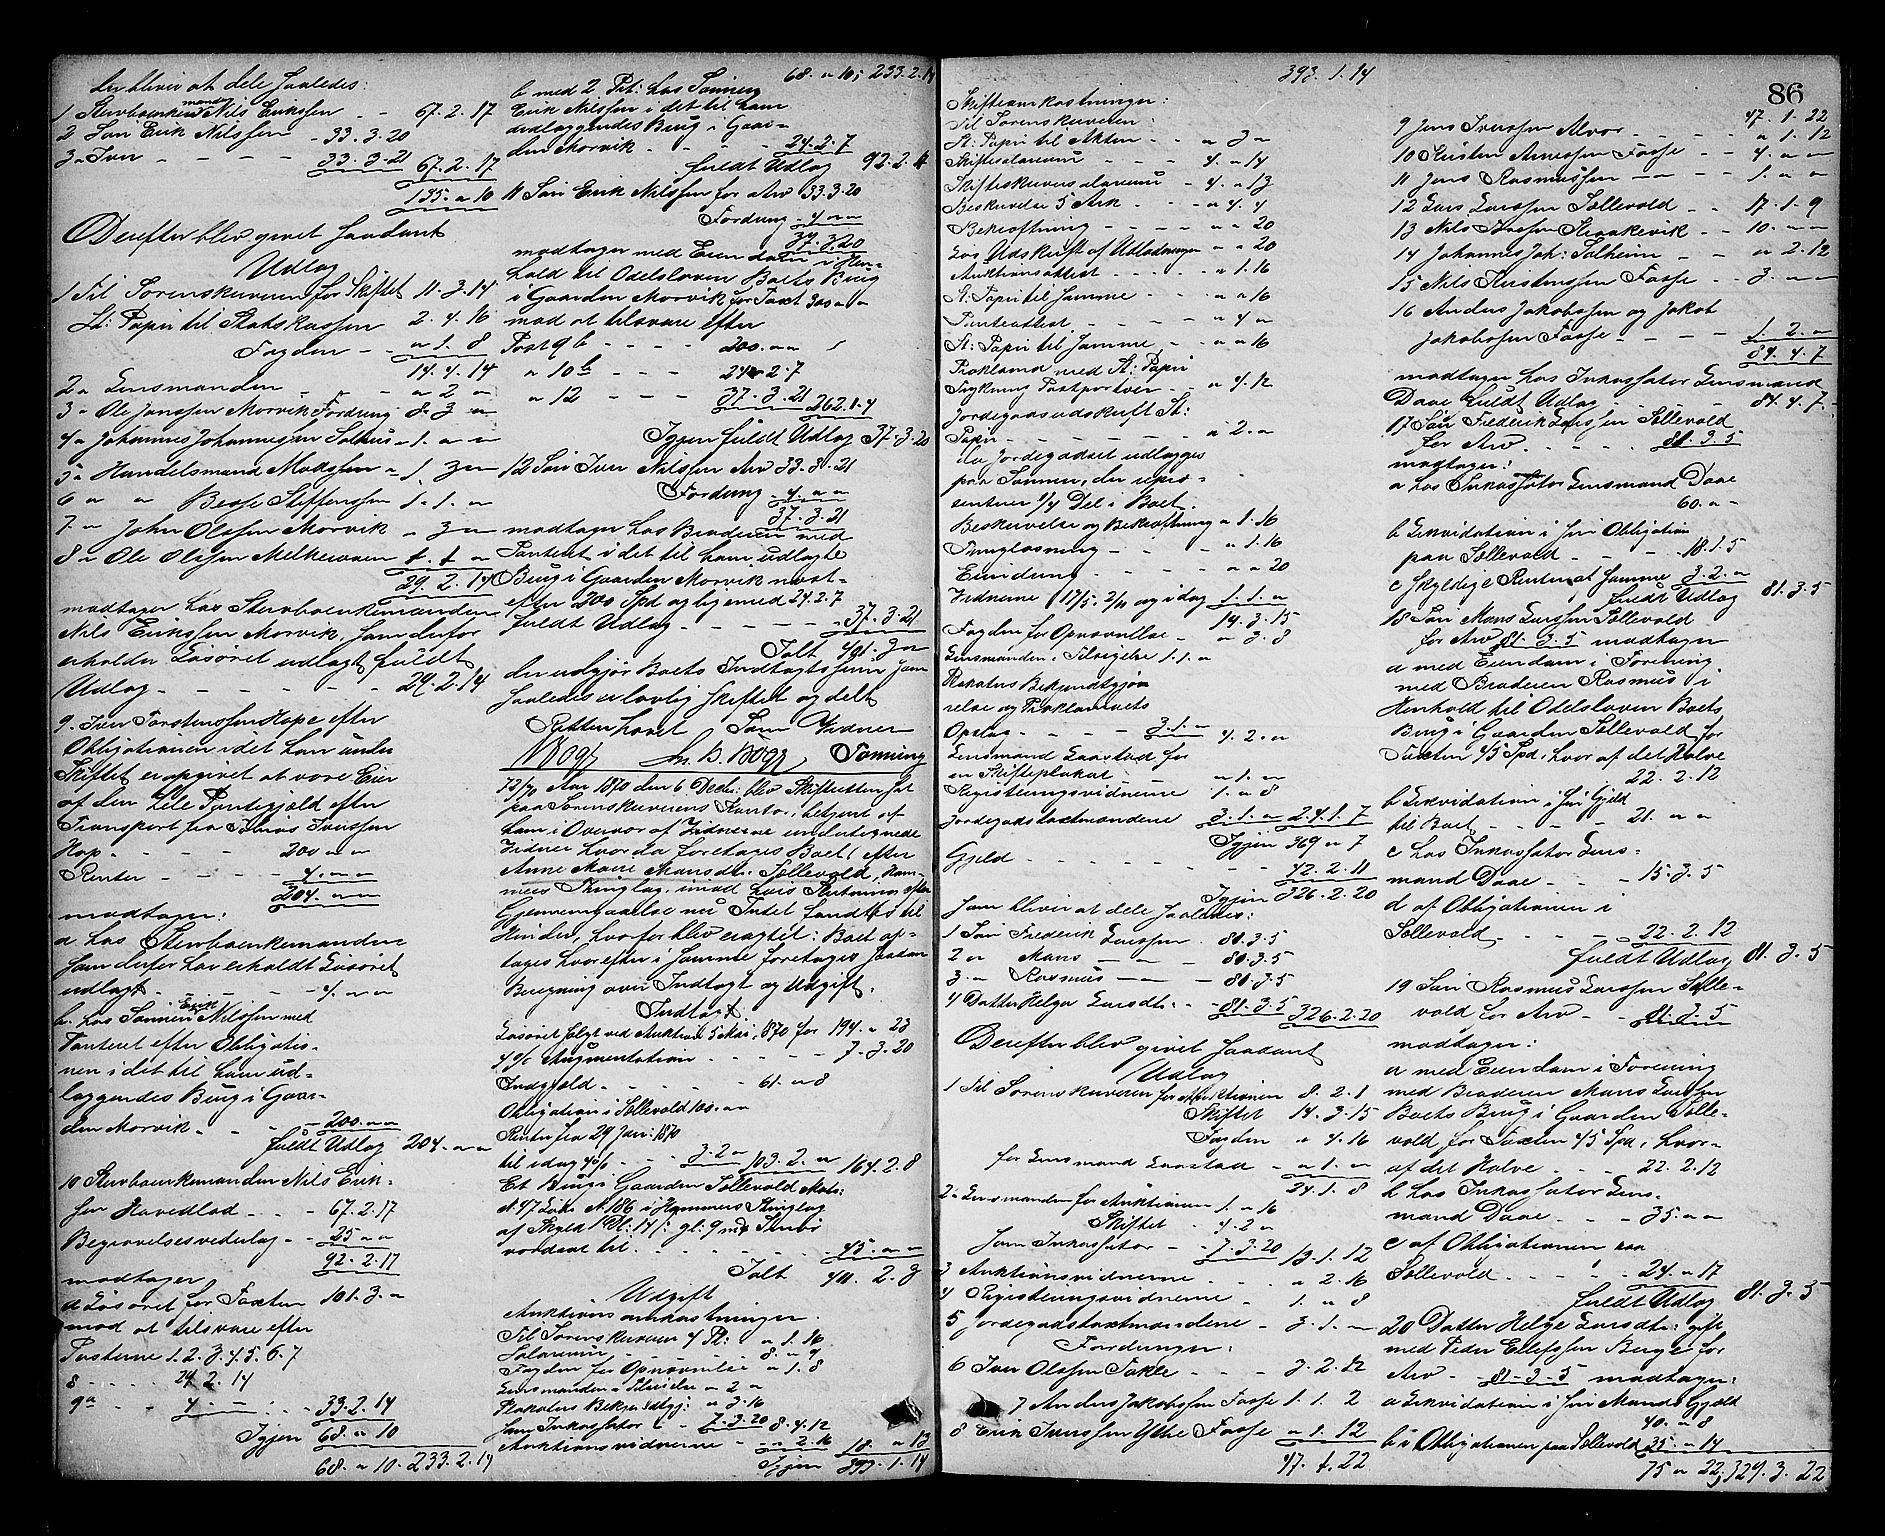 der bliver at dele saaledes:
1 Stervboenkemanden Nils Erikssen - - 67. 2. 17
2 Søn Erik Nilssen - 33. 3. 20
3 " Iver - - - - 33. 3. 21 67. 2. 17
135. " 10
Derefter blev givet saadant
Udlæg
1 Til Sorenskriveren for Skiftet 11. 3. 14
St: Papir til Statskassen 2. 4. 16
Fogden - - " 1. 8
14. 4. 14
2 " Lensmanden - - " 2 "
3 " Ole Janssen Morvik Fordring 8. 3 "
4 " Johannes Johannessen - 1. " "
5 " Handelsmand Madssen " 1. 3 "
6 " " Besse Steffenssen 1. 1. "
7 " John Olssen Morvik - " 3 "
8 " Ole Olssen
29. 2. 14
modtager hos Stervboenkemanden
Nils Erikssen Morvik, som derfor
erholder Løsøret udlagt fuldt
Udlæg - - - - - 29. 2. 14
9. Iver Torstenssen Hope efter
Obligationen i det han under
Skiftet er opgivet at være Eier
af den hele Pantegjæld efter
Transport fra Tobias Iverssen
Hop - - - - 200 " "
Renter - - - - 4. " "
204. " "
modtager:
a hos Stervboenkemanden
som derfor har erholdt Løsøret
udlagt - - - - 4. " "
b. hos Sønnen Erik Nilssen med
Panteret efter Obligatio-
nen i det til ham ud-
læggendes Brug i Gaar-
den Morvik - - - 200. " "
fuldt Udlæg 204. " "
10 Stervboenkemanden Nils Erik-
sen Hovedlod - - - 67. 2. 17
Begravelsesvederlag - - 25 " "
92. 2. 17
modtager
a Løsøret for Taxten 101. 3. "
mod at tilsvare efter
Posterne 1. 2. 3. 4. 5. 6. 7
8 - - - - 29. 2. 14
9a - - 4 - - - 33. 2. 14
Igjen 68. " 10
68. " 10. 233. 2. 14
68. " 10; 233. 2. 14
b med 2. Pr: hos Sønnen
Erik Nilssen i det til ham
udlæggendes Brug i Gaar-
den Morvik - - - - 24. 2. 7
fuldt Udlæg 92. 2. 17
11 Søn Erik Nilssen for Arv 33. 3. 20
Fordring - 4. " "
37. 3. 20
modtager med Eiendom i Hen-
hold til Odelsloven Boets Brug
i Gaarden Morvik for Taxt 300 " "
mod at tilsvare efter
Post 9 b - - - - 200. " "
" 10 b - - - 24. 2. 7
" 12 - - - 37. 3. 21 262. 1. 4
Igjen fuldt Udlæg 37. 3. 20
12 Søn Iver Nilssen Arv 33. 3. 21
Fordring - 4. " "
37. 3. 21
modtager hos Broderen med
Panteret i det til ham udlagte
Brug i Gaarden Morvik næst-
efter 200 Spd og lige med 24. 2. 7
fuldt Udlæg - - - - - 37. 3. 21
Ialt 401. 3 "
der udgjør Boets Indtægtssum som
saaledes er lovlig skiftet og delt
Retten hævet Som Vidner
Tønning
73/70 Aar 1870 den 6 Decbr: blev Skifteretten sat
paa Sorenskriverens Kontor, betjent af
ham i Overvær af Vidnerne undertegnede
Vidner hvor da foretages Boet efter
Anne Marie Monsdtr. Søllevold, Ham-
mers Thinglag, imod hvis Slutning efter
Gjennemgaaelse nu Intet fandtes til
Hinder, hvorfor blev eragtet: Boet op-
tages hvorefter i Samme foretages saadan
Beregning over Indtægt og Udgift.
Indtægt
Løsøret solgt ved Auktion 5 Mai 1870 for 194. " 23
4 o/o Augmentation - - - - - 7. 3. 20
Indgjæld - - - - - 61. " 8
Obligation i Søllevold 100. " "
Renter fra 29 Jan: 1870
til idag 4 o/o - - - 3. 2 " 103. 2. " 164. 2. 8
Et Brug i Gaarden Søllevold Mats:
N. 47 Løbe N. 186 i Hammers Thinglag
af Skyld
vorderet til - - - - - 45. " "
Ialt 411. 2. 3
Udgift
Auktions omkostninger:
Til Sorenskriveren St: " 1. 16
Salarium - - - 8. " 9
Fogden for Opnævnelse " 1. 8
Lensmanden Tilsigelse " 2 "
Plakatens Bekjendtgj: " 3. 16
som Inkassator - - 7. 3. 20 8. 4. 12
Auktionsvidnerne - " 2. 16 18. " 13
Igjen 393. 1. 14
393. 1. 14
Skifteomkostninger:
Til Sorenskriveren:
St: Papir til Akten - - " 3 "
Skiftesalarium - - 4. " 14
Skifteskriversalarium - 4. " 13
Beskrivelse 5 Ark - - - " 4. 4
Bekræftning - - - - " " 20
Log Udskrift af Udlodningen - " 20
Auktionsattest - - - - " 1. 16
St: Papir til Samme - - - " " 16
Panteattest - - - - - " 4 "
St: Papir til Samme - - " " 16
Proklama med St: Papir
Trykning Postporto - " 4. 12
Jordegodsudskrift St:
Papir - - - - - - - " 2. "
da Jordegodset udlægges
paa Sønnen, der repræ-
senterer 1/4 Del i Boet.
Beskrivelse og Bekræftning " 1. 16
Thinglæsning - - - - " 1. 16
Eiendom - - - - - " " 20
Vidnerne 17/5. 2/11 og i dag 1. 1. "
14. 3. 15
Fogden for Opnævnelse - " 3. 8
Lensmanden: Tilsigelse 1. 1. "
Plakatens Bekjendtgjø-
relse og Proklamaets
Opslag - - - - - 3. 1. " 4. 2. "
Lensmand Gaarstad for
en Skifteplakat - - " 1. "
Registreringsvidnerne 1. " 8
Jordegodstaxtmændene 3. 1. " 24. 1. 7
Igjen 369 " 7
Gjæld - - - - - - - 42. 2. 11
Igjen 326. 2. 20
som bliver at dele saaledes:
1 Søn Frederik Larssen - 81. 3. 5
2 " Mons - - - - 81. 3. 5
3. " Rasmus - - - 81. 3. 5
4 Datter Helga Larsdtr. - - 81. 3. 5 326. 2. 20
Derefter blev givet saadant
Udlæg
1 Til Sorenskriveren for Auktionen 8. 2. 1
Skiftet 14. 3. 15
Fogden " 4. 16
for Lensmand Gaarstad - " 1. "
24. 1. 8
2 " Lensmanden for Auktionen 1. " 16
Skiftet - 4. 2 "
som Inkassator - - 7. 3. 20 13. 1. 12
3 Auktionsvidnerne - - - " 2. 16
4 Registreringsvidnerne - 1. " 8
5 Jordegodstaxtmændene - 3. 1. "
Fordringer:
6 Iver Olssen Takle - - - 3. 2. 12
7 Anders Jakobssen Fosse 1. 1. 2
8 Erik Iverssen Ytre Fosse " 1. 12
47. 1. 22
86
47. 1. 22
9 Jens Iverssen Alvær - - - - " 1. 12
10 Kristen Arnessen Fosse - - 4. " "
11 Jens Rasmussen - " - - 1. " "
12 Lars Larssen Søllevold - - 17. 1. 9
13 Nils Kraakevik - - 10. " "
14 Johannes Joh: Solheim - - " 2. 12
15 Nils Kristenssen Fosse - - 3. " "
16 Anders Jakobssen og Jakob
Jakobssen Fosse - - - - 1. 2. "
84. 4. 7
modtager hos Inkassator Lensmand
Daae fuldt Udlæg - - - - 84. 4. 7
17 Søn Frederik Larssen Søllevold
for Arv - - - - 81. 3. 5
modtager:
a hos Inkassator Lensmand Daae
60. " "
b Likvidation i sin Obligation
paa Søllevold - - - - 18. 1. 5
c Skyldige Renter af Samme 3. 2. "
fuldt Udlæg 81. 3. 5
18 Søn Mons Larssen Søllevold
for Arv 81. 3. 5 modtager
a med Eiendom i Forening
med Broderen Rasmus i
Henhold til Odelsloven Boets
Brug i Gaarden Søllevold for
Taxten 45 Spd, hvoraf det Halve
22. 2. 12
b Likvidation i sin Gjæld
til Boet - - - - - 21. " "
c hos Inkassator Lens-
mand Daae - - - 15. 3. 5
d af Obligationen i
Søllevold - - - - - 22. 2. 12
fuldt Udlæg 81. 3. 5
19 Søn Rasmus Larssen Sølle-
vold for Arv - - 81. 3. 5
modtager:
a med Eiendom i Forening
med Broderen Mons Larssen
Boets Brug i Gaarden Sølle-
vold for Taxten 45 Spd, hvor-
af det Halve - - - 22. 2. 12
b hos Inkassator Lens-
mand Daae - - - 35. " "
c af Obligationen paa
Søllevold - - - - - 24. " 17
fuldt Udlæg 81. 3. 5
20 Datter Helge Larsdtr: gift
med Peder Ellefssen Berge for
Arv - 81. 3. 5 modtager:
a Likvidation i sin Mands Gjæld
40. " 8
b i Obligationen paa Søllevold 35. " 14
75 " 22; 329. 3. 22